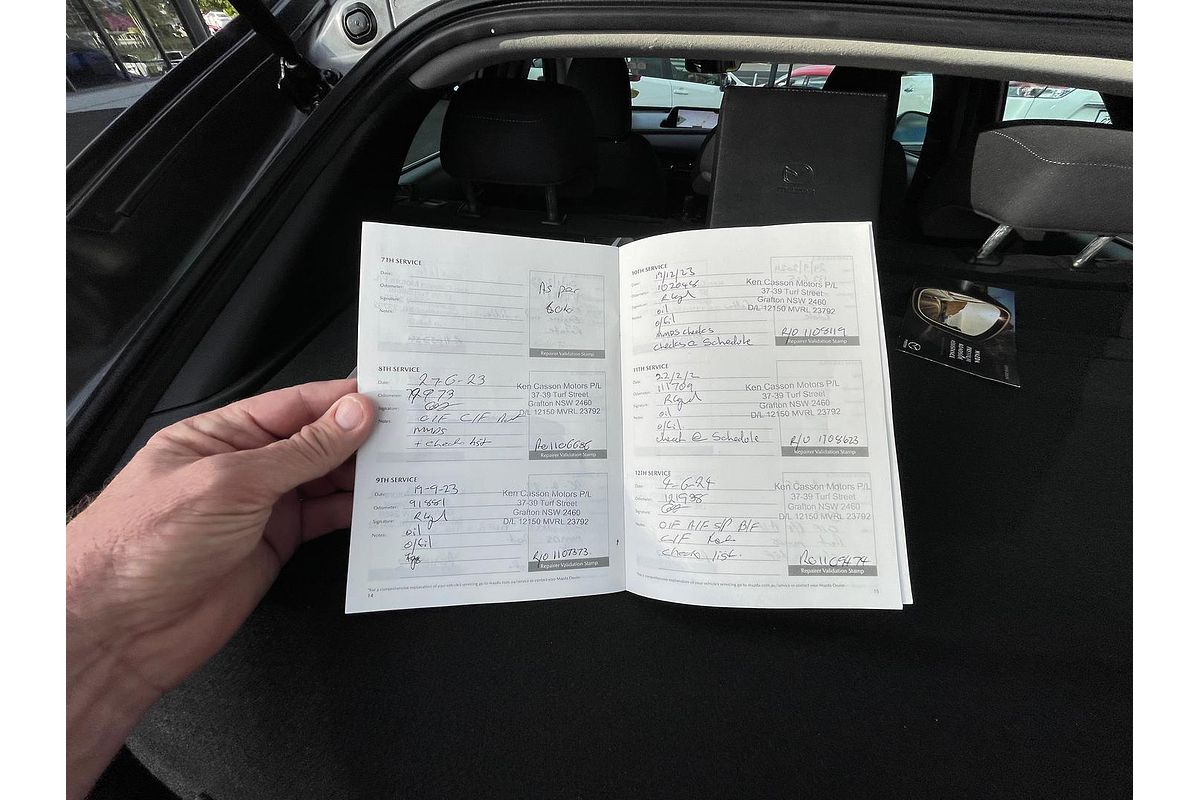 7TH SERVICE
Date:
Odometer:
Signature:
Notes:
As per
Repairer Validation Stamp
8TH SERVICE
Date: 27-6-23
Odometer: 79973
Signature:
Notes: O/F C/F
MMDS
+ check list
Ken Casson Motors P/L
37-39 Turf Street
Grafton NSW 2460
D/L 12150 MVRL 23792
Ro1106686
Repairer Validation Stamp
9TH SERVICE
Date: 19-9-23
Odometer: 91881
Signature:
Notes: oil
o/fil
Ken Casson Motors P/L
37-39 Turf Street
Grafton NSW 2460
D/L 12150 MVRL 23792
R/O 1107373
Repairer Validation Stamp
*For a comprehensive explanation of your vehicle's servicing go to mazda.com.au/service or contact your Mazda Dealer.
14
10TH SERVICE
Date: 19/12/23
Odometer: 102048
Signature:
Notes: oil
o/fil
MMDS checks
checks @ Schedule
Ken Casson Motors P/L
37-39 Turf Street
Grafton NSW 2460
D/L 12150 MVRL 23792
R/O 1108119
Repairer Validation Stamp
11TH SERVICE
Date: 22/2/2
Odometer: 111709
Signature:
Notes: oil
o/fil
check @ Schedule
Ken Casson Motors P/L
37-39 Turf Street
Grafton NSW 2460
D/L 12150 MVRL 23792
R/O 1708623
Repairer Validation Stamp
12TH SERVICE
Date: 4-6-24
Odometer: 121988
Signature:
Notes: O/F A/F S/P B/F
C/F
check list.
Ken Casson Motors P/L
37-39 Turf Street
Grafton NSW 2460
D/L 12150 MVRL 23792
Ro1109474
Repairer Validation Stamp
*For a comprehensive explanation of your vehicle's servicing go to mazda.com.au/service or contact your Mazda Dealer.
15